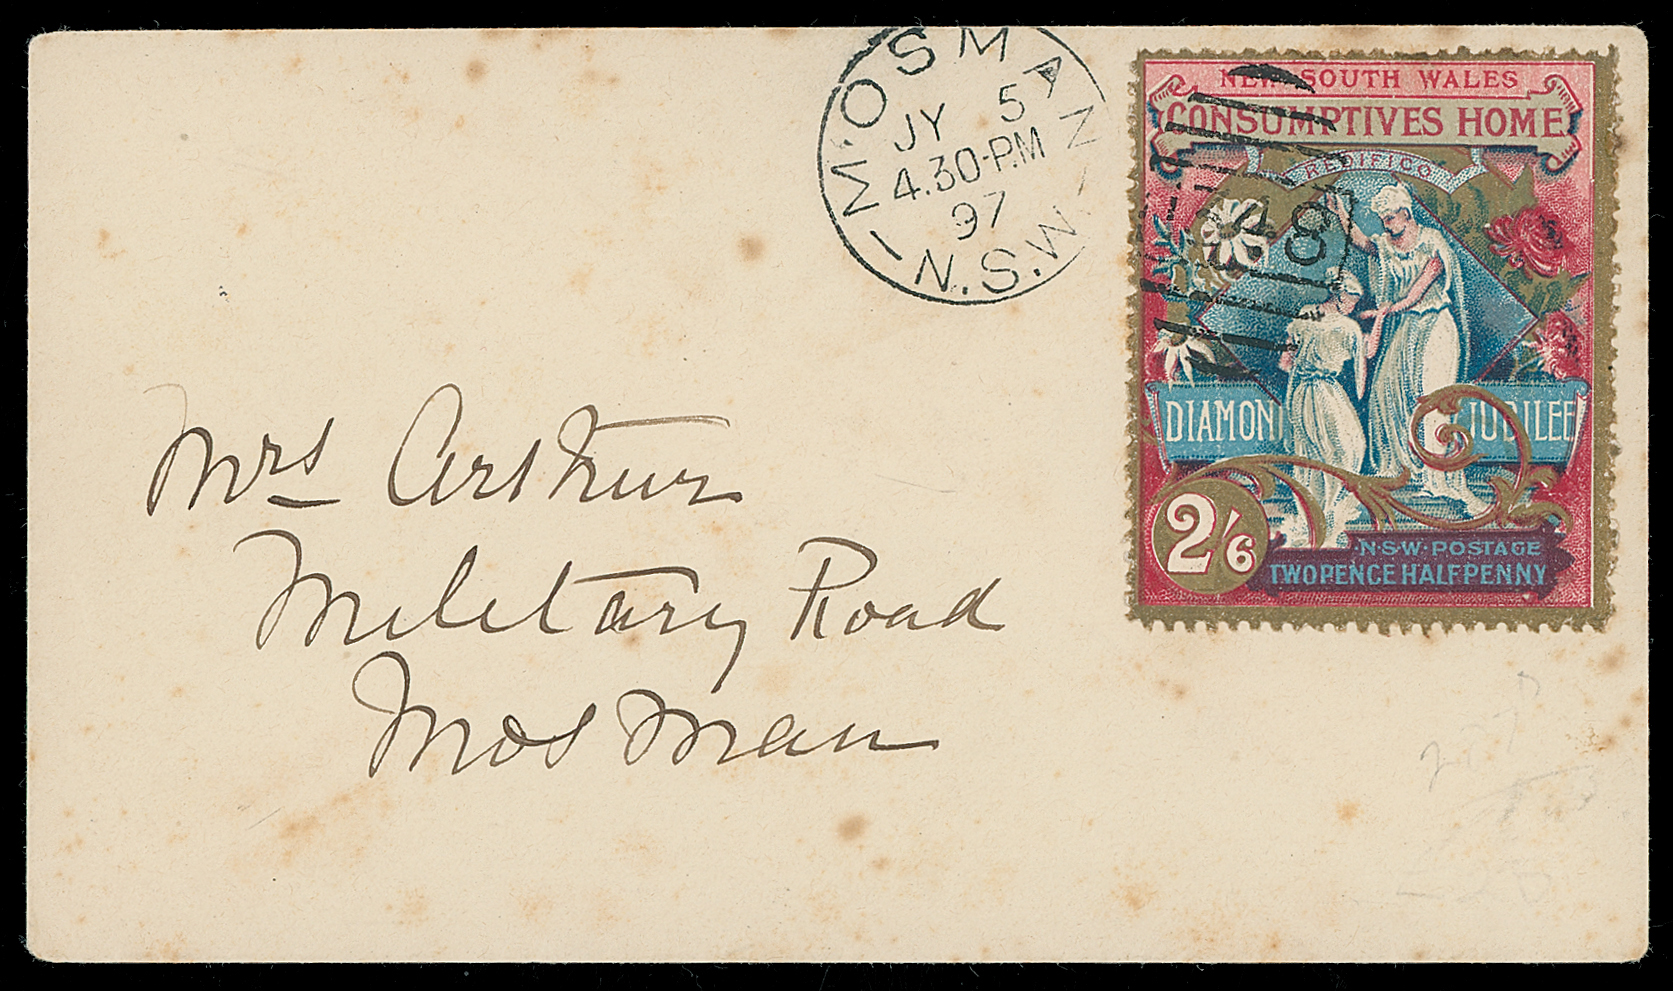 MOSMAN
JY 5
4.30·PM
97
N.S.W
NEW SOUTH WALES
CONSUMPTIVES HOME
REDIFICO
DIAMOND JUBILEE
2/6
N·S·W·POSTAGE
TWOPENCE HALFPENNY
Mrs Arthur
Military Road
Mosman